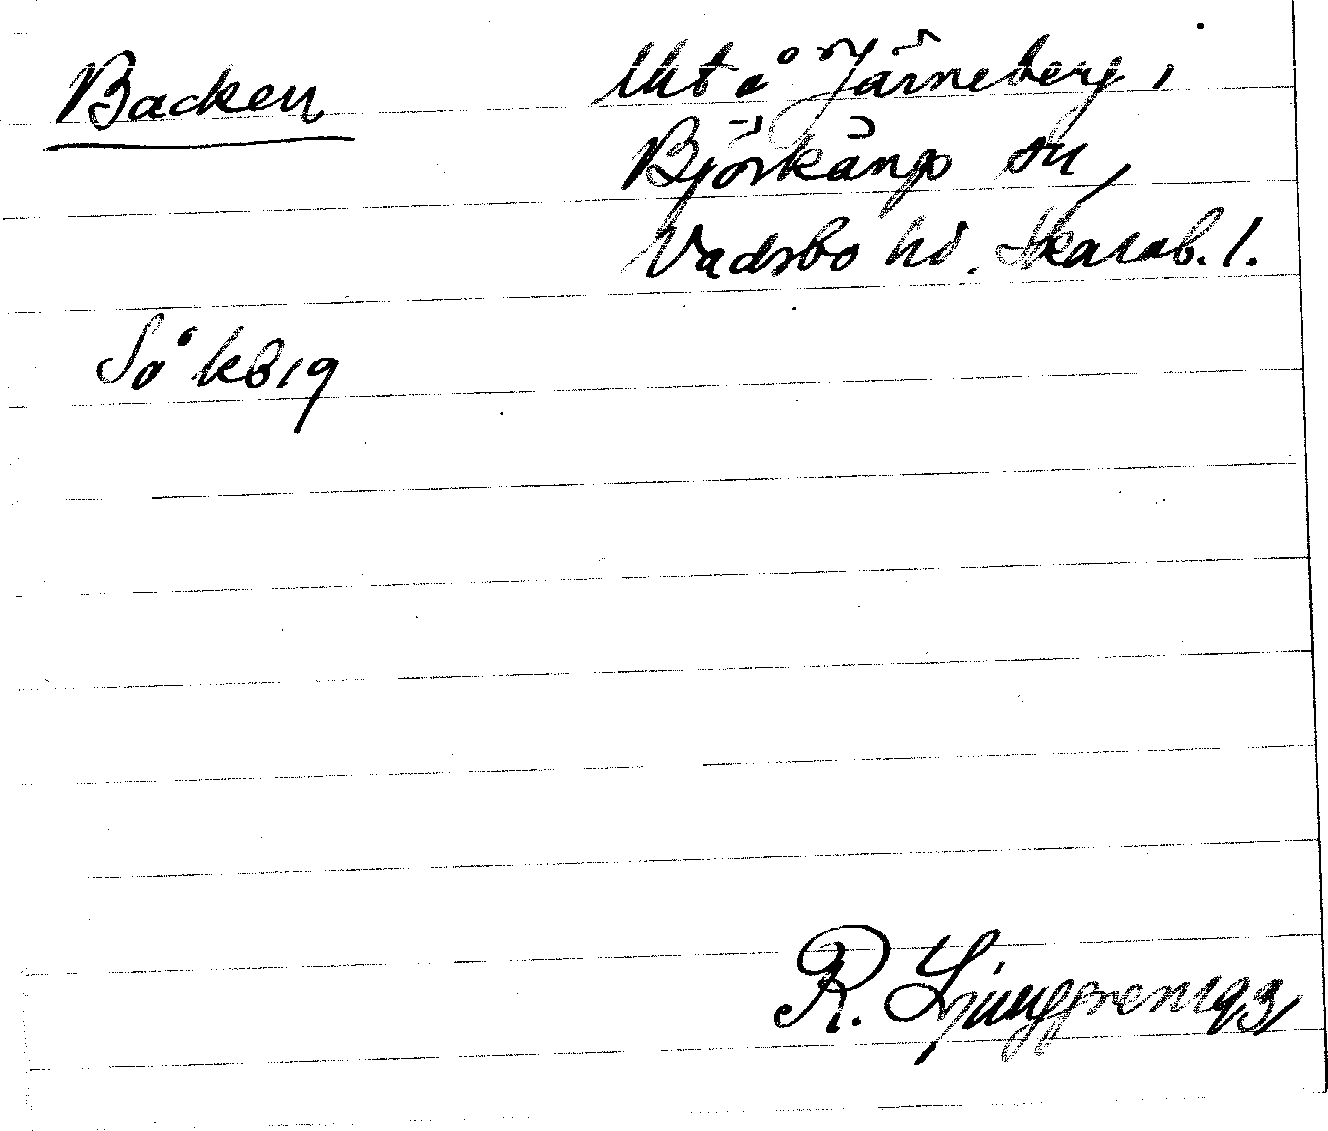 Backen
Utå Järneberg,
Björkängs sn,
Vadsbo hd. Skarab. l.
Så KB 19
R. Ljunggren 1931